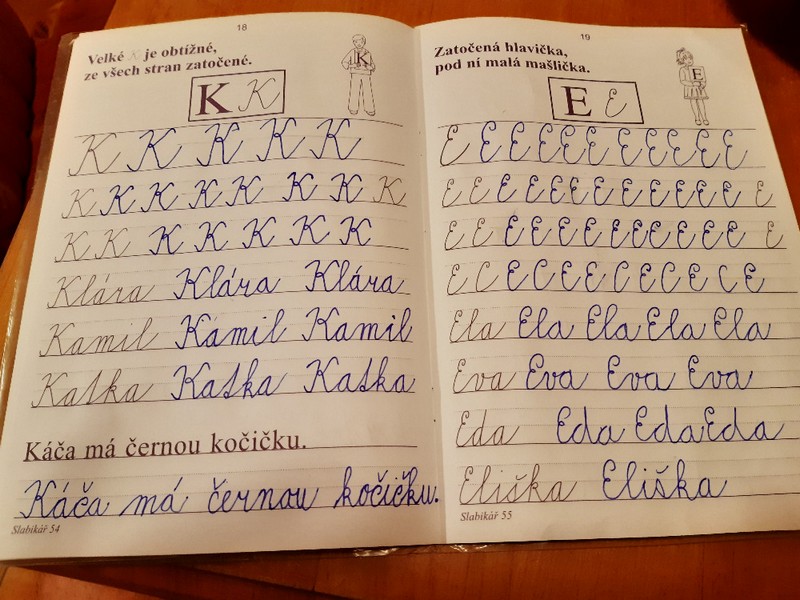 18
Velké K je obtížné,
ze všech stran zatočené.
K
K K
K K K K K
K K K K K K K K
K K K K K K K
Klára Klára Klára
Kamil Kamil Kamil
Katka Katka Katka
Káča má černou kočičku.
Káča má černou kočičku.
Slabikář 54
19
Zatočená hlavička,
pod ní malá mašlička.
E
E E
E E E E E E E E E E E
E E E E E E E E E E E E E
E E E E E E E E E E E E E
E C E C E E C E C E C E
Ela Ela Ela Ela Ela
Eva Eva Eva Eva
Eda Eda Eda Eda
Eliška Eliška
Slabikář 55